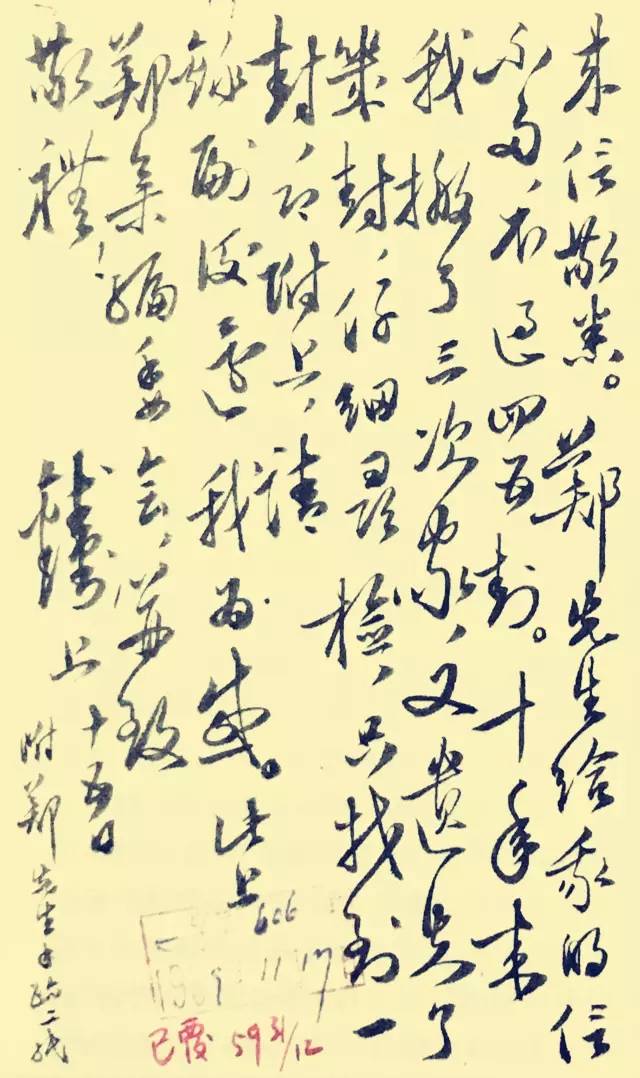 来信敬悉。郑先生给我的信
不多，不过四五封。十年来
我搬了三次家，又遗失了
几封，仔细寻检，只找到一
封，兹附上，请
录副后还我为感。此上
郑集编委会，并致
敬礼！
锺书上 十五日
附郑先生手迹二纸
1959.11.17
已覆 59 31/12